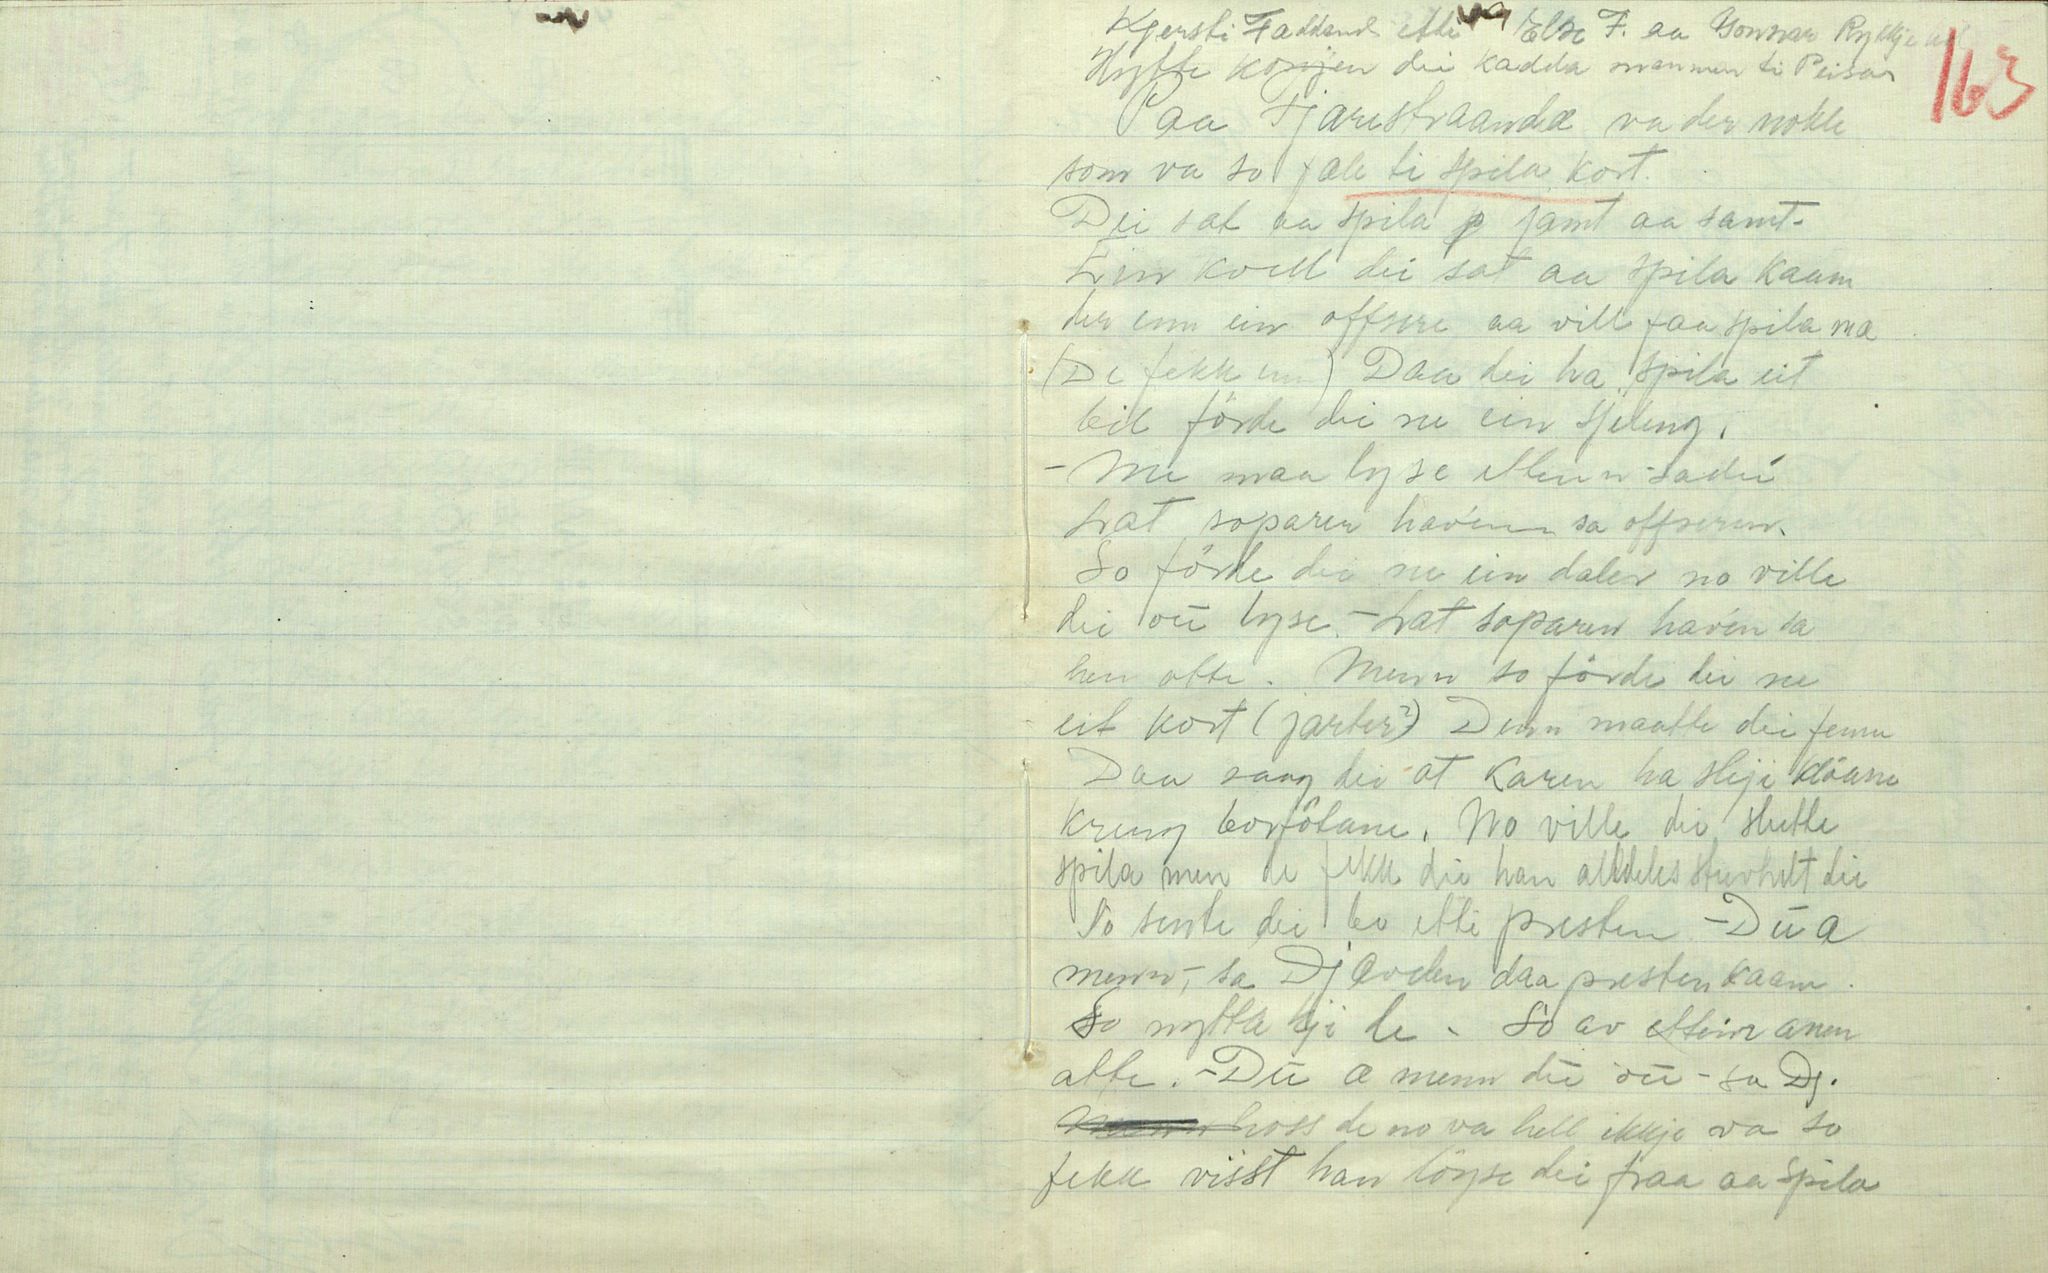 Kjersti Faddand etti Else F. aa Gonnar Rykkje
Hytte kosijen dei kadda mannen ti Peisar
163
Paa Fjærestraandæ va der nokle
som va so fæle ti spila kort.
Dei sat aa spila jamt aa samt.
Ein kvell dei sat aa spila kaam
der inn ein offsere aa vill faa spila mæ
(De fekk enn) Daa dei ha spila eit
bil förde dei ne ein sjeleng.
- Me maa lyse etten - sa dei
Lat soparen hav'en sa offseren.
So förde dei ne ein daler no ville
dei öu lyse - Lat soparen hav'en sa
hen atte. Menn so förde dei ne
eit kort (jarter?) Denn maatte dei fenn
Daa saag dei at Karen ha sleji klöane
kreng borfötane. No ville dei slutte
spila men de fekk dei han alldeles stevhelt dei
So sente dei bo etti presten - Dü æ
menn, - sa Djævelen daa presten kaam.
So nytta kji de - So av etter anen
atte. - Dü æ menn dü öü - sa Dj.
hoss de no va hell ikkje va so
fekk visst han löyse dei fraa aa spila